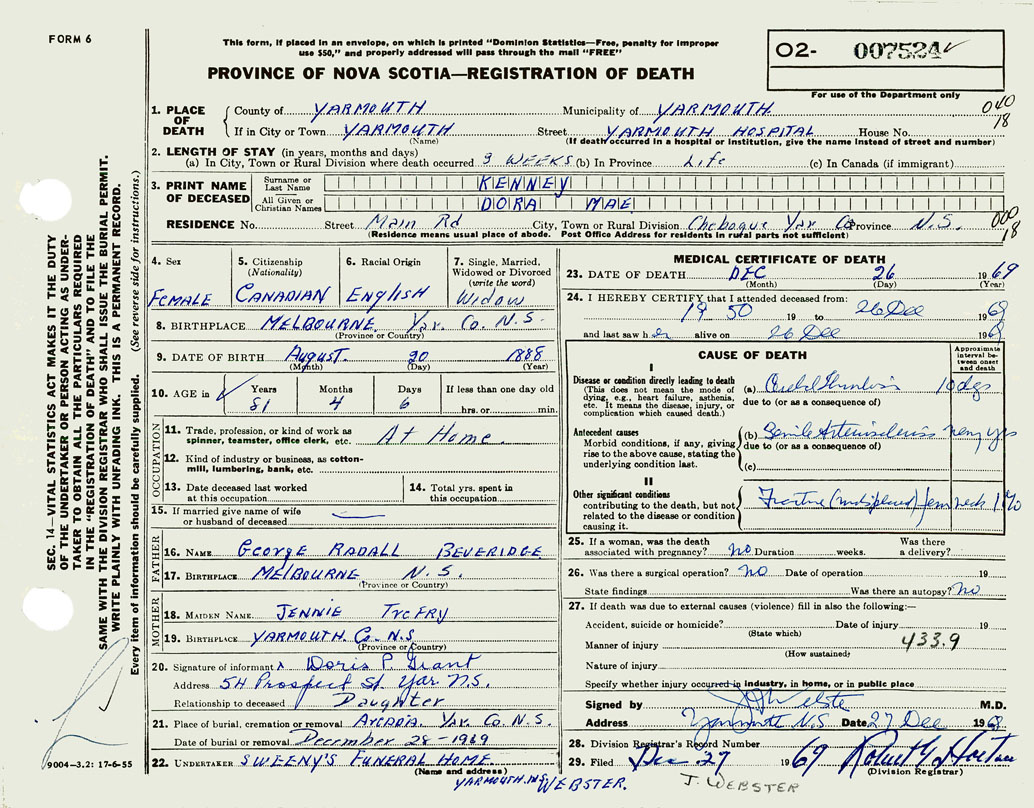 FORM 6
This form, if placed in an envelope, on which is printed "Dominion Statistics—Free, penalty for improper
use $50," and properly addressed will pass through the mail "FREE"
PROVINCE OF NOVA SCOTIA—REGISTRATION OF DEATH
02- 007524
For use of the Department only
040
18
1. PLACE OF DEATH
County of YARMOUTH Municipality of YARMOUTH
If in City or Town YARMOUTH Street YARMOUTH HOSPITAL House No.
(Name) (If death occurred in a hospital or institution, give the name instead of street and number)
2. LENGTH OF STAY (in years, months and days)
(a) In City, Town or Rural Division where death occurred 3 WEEKS (b) In Province Life (c) In Canada (if immigrant)
3. PRINT NAME OF DECEASED
Surname or Last Name KENNEY
All Given or Christian Names DORA MAE
RESIDENCE No. Street Main Rd City, Town or Rural Division Chebogue Yar Co Province N.S.
(Residence means usual place of abode. Post Office Address for residents in rural parts not sufficient)
000
18
4. Sex FEMALE
5. Citizenship (Nationality) CANADIAN
6. Racial Origin English
7. Single, Married, Widowed or Divorced (write the word) Widow
8. BIRTHPLACE MELBOURNE Yar. Co. N.S.
(Province or Country)
9. DATE OF BIRTH August 20 1888
(Month) (Day) (Year)
10. AGE in Years 81 Months 4 Days 6 If less than one day old hrs. or min.
OCCUPATION
11. Trade, profession, or kind of work as spinner, teamster, office clerk, etc. At Home.
12. Kind of industry or business, as cotton-mill, lumbering, bank, etc.
13. Date deceased last worked at this occupation
14. Total yrs. spent in this occupation
15. If married give name of wife or husband of deceased
FATHER
16. NAME George RADALL BEVERIDGE
17. BIRTHPLACE MELBOURNE N.S.
(Province or Country)
MOTHER
18. MAIDEN NAME JENNIE TREFRY
19. BIRTHPLACE YARMOUTH Co. N.S
(Province or Country)
20. Signature of informant x Doris P. Grant
Address 54 Prospect St. Yar N.S.
Relationship to deceased Daughter
21. Place of burial, cremation or removal ARCADIA Yar. Co N.S.
Date of burial or removal December 28-1969
22. UNDERTAKER SWEENY'S FUNERAL HOME.
(Name and address)
YARMOUTH, N.S
WEBSTER.
MEDICAL CERTIFICATE OF DEATH
23. DATE OF DEATH DEC 26 1969
(Month) (Day) (Year)
24. I HEREBY CERTIFY that I attended deceased from:
1950 19 to 26 Dec 1969
and last saw her alive on 26 Dec 1969
CAUSE OF DEATH
Approximate interval between onset and death
I
Disease or condition directly leading to death
(This does not mean the mode of dying, e.g., heart failure, asthenia, etc. It means the disease, injury, or complication which caused death.)
(a) 10 dys
due to (or as a consequence of)
Antecedent causes
Morbid conditions, if any, giving rise to the above cause, stating the underlying condition last.
(b) Senile Arteriosclerosis many yrs
due to (or as a consequence of)
(c)
II
Other significant conditions
contributing to the death, but not related to the disease or condition causing it.
Fracture (undisplaced) fem neck
25. If a woman, was the death associated with pregnancy? no Duration weeks. Was there a delivery?
26. Was there a surgical operation? no Date of operation 19
State findings Was there an autopsy? no
27. If death was due to external causes (violence) fill in also the following:—
Accident, suicide or homicide? Date of injury 19
(State which)
Manner of injury 433.9
(How sustained)
Nature of injury
Specify whether injury occurred in industry, in home, or in public place
Signed by J Webster M.D.
Address Yarmouth N.S Date 27 Dec 1969
28. Division Registrar's Record Number
29. Filed Dec 27 1969
(Division Registrar)
J. WEBSTER
SEC. 14—VITAL STATISTICS ACT MAKES IT THE DUTY
OF THE UNDERTAKER OR PERSON ACTING AS UNDER-
TAKER TO OBTAIN ALL THE PARTICULARS REQUIRED
IN THE "REGISTRATION OF DEATH" AND TO FILE THE
SAME WITH THE DIVISION REGISTRAR WHO SHALL ISSUE THE BURIAL PERMIT.
WRITE PLAINLY WITH UNFADING INK. THIS IS A PERMANENT RECORD.
Every item of information should be carefully supplied. (See reverse side for instructions.)
9004—3.2: 17-6-55